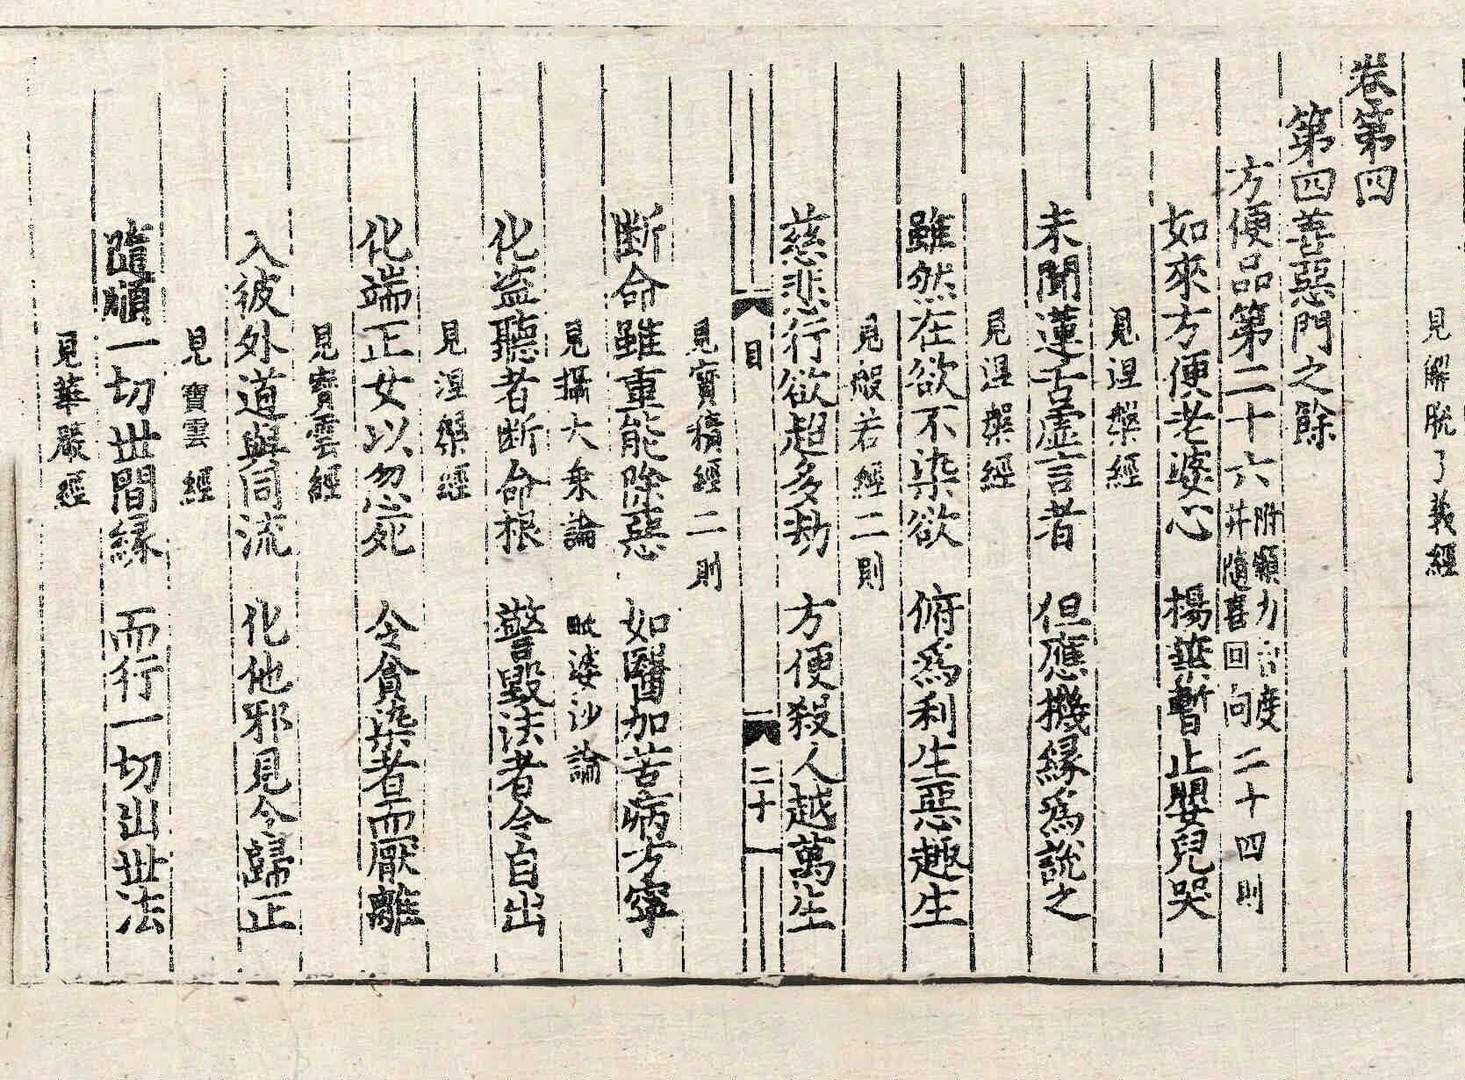 見解脫了義經
卷第四
第四善惡門之餘
方便品第二十六 附願力 度 并隨喜回向 二十四則
如來方便老婆心 楊葉暫止嬰兒哭
見涅槃經
未聞蓮舌虛言者 但應機緣為說之
見涅槃經
雖然在欲不染欲 俯為利生惡趣生
見般若經二則
慈悲行欲超多劫 方便殺人越萬生
目 二十
見寶積經二則
斷命雖重能除惡 如醫加苦病方寧
見攝大乘論 毗婆沙論
化盜聽者斷命根 警毀法者令自出
見涅槃經
化端正女以忽死 令貪染者而厭離
見寶雲經
入彼外道與同流 化他邪見令歸正
見寶雲經
隨順一切世間緣 而行一切出世法
見華嚴經